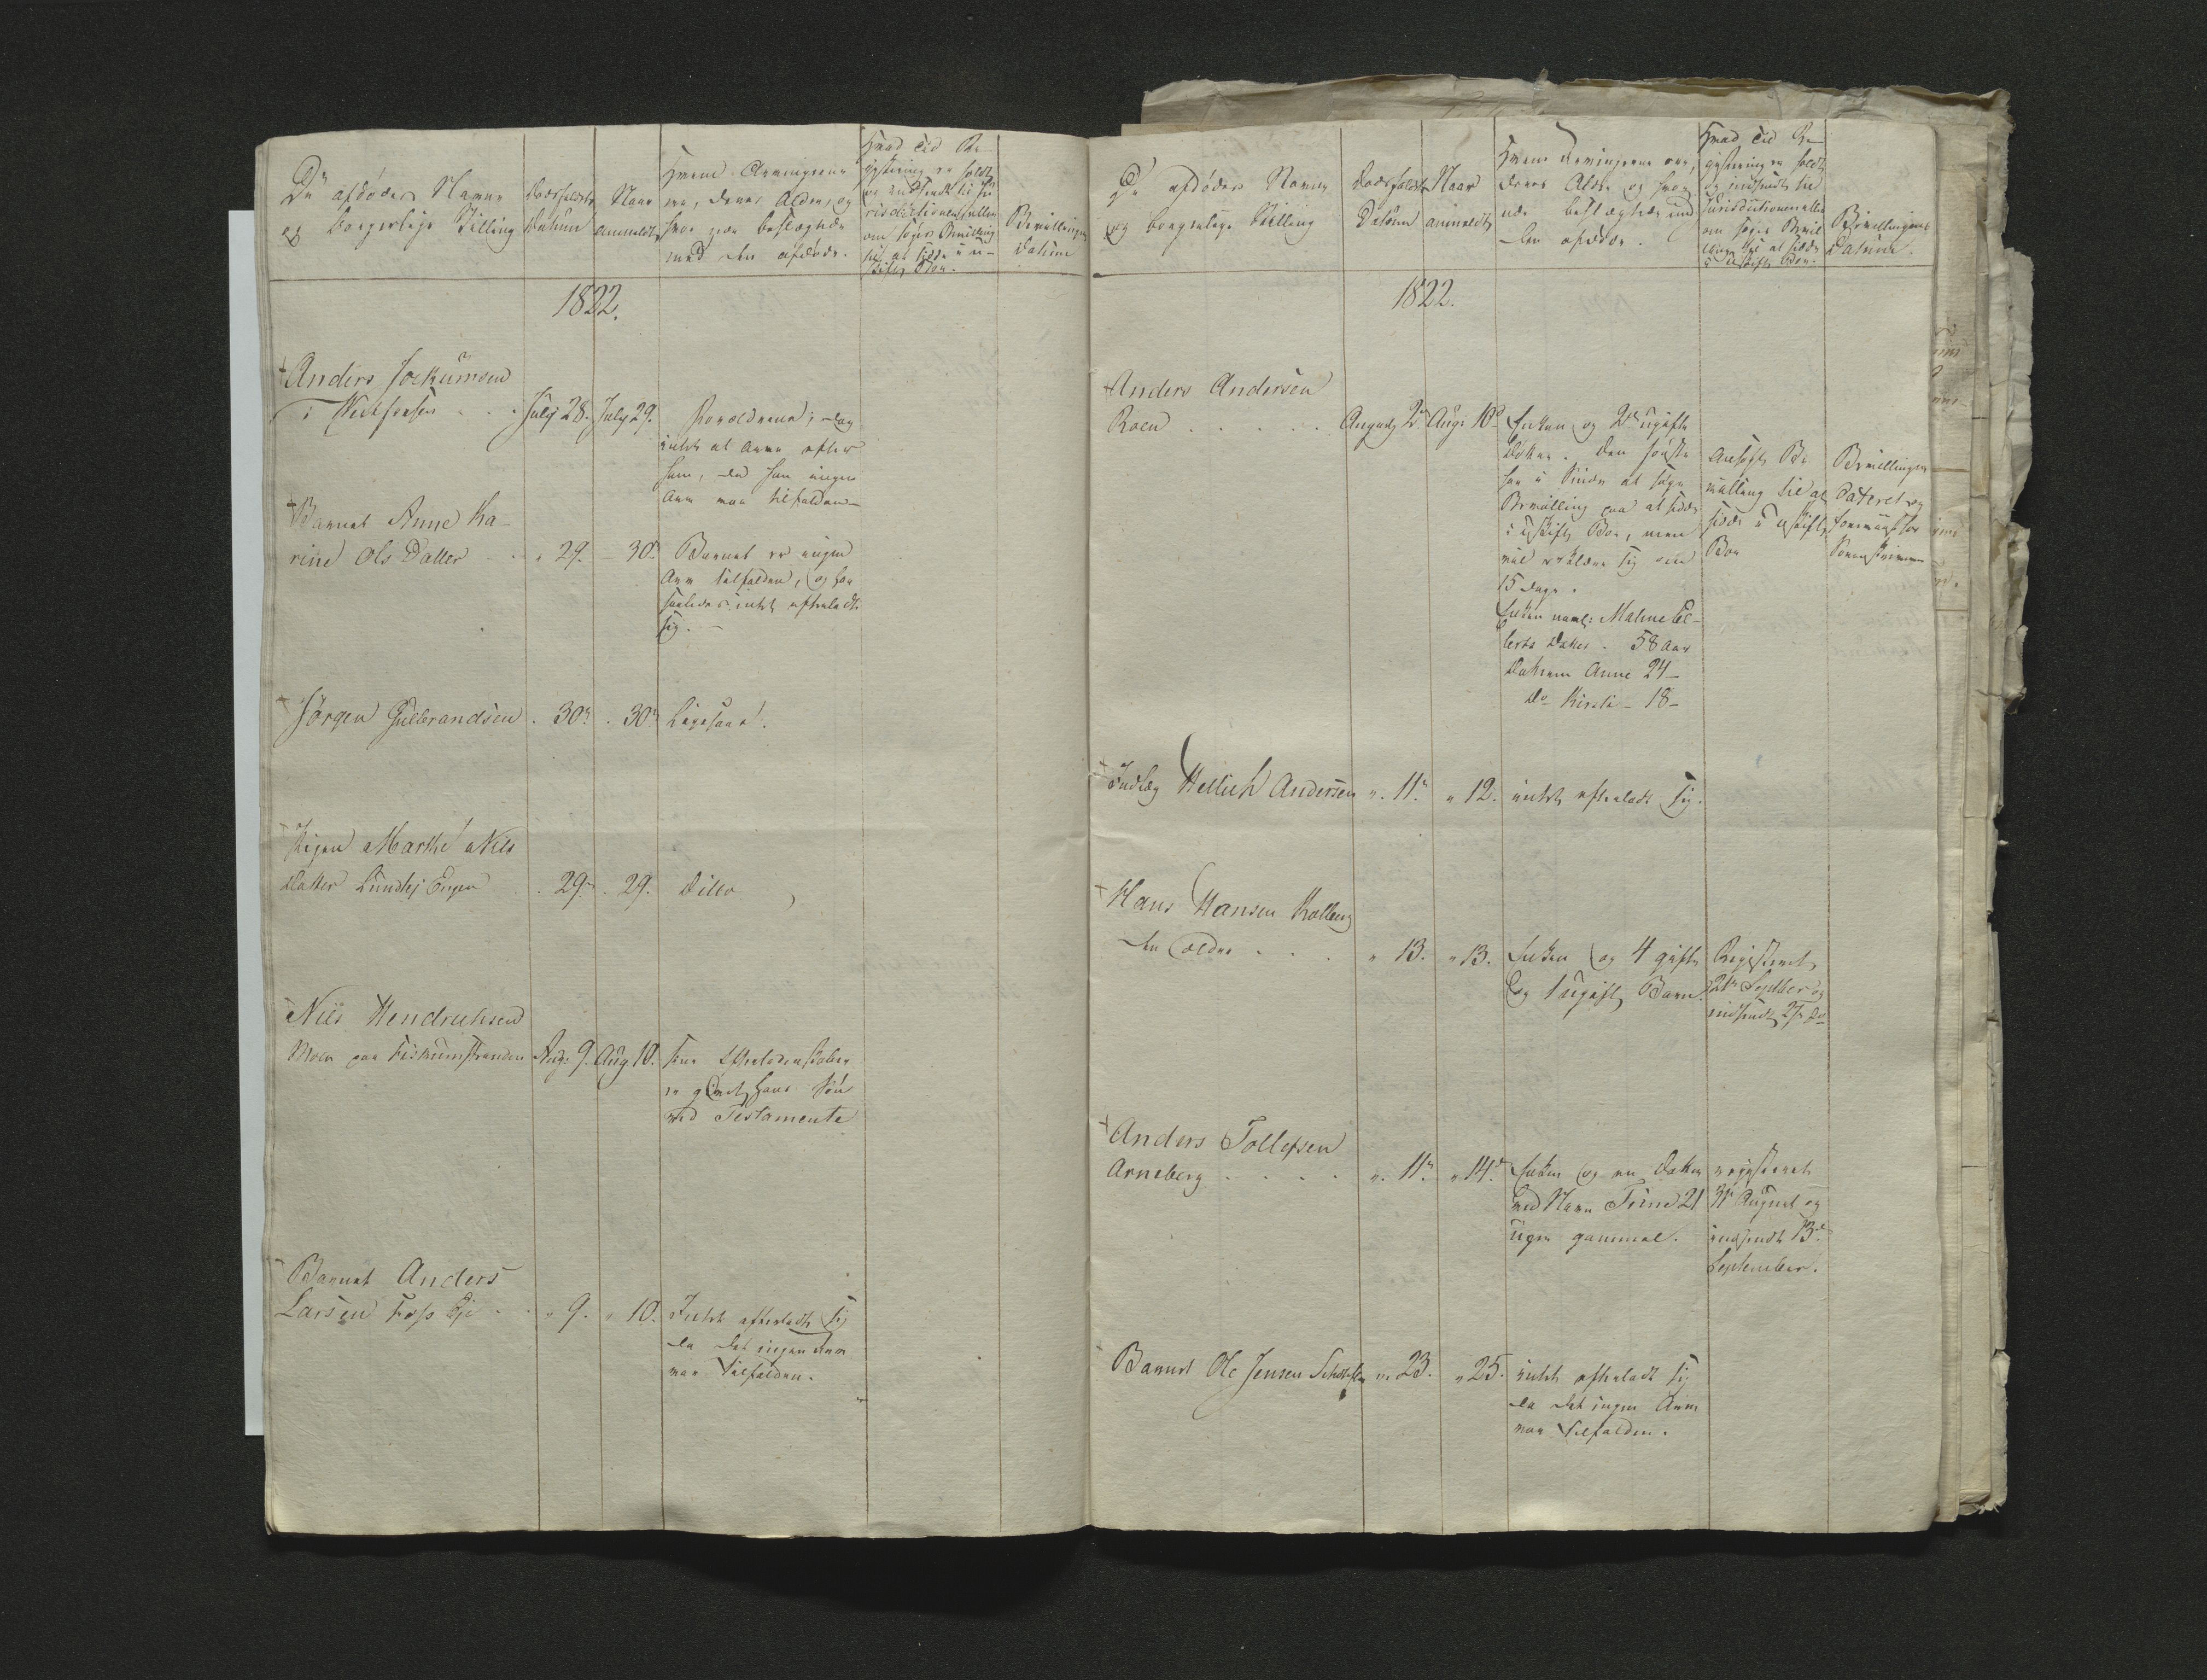 De afdødes Navne
og borgerlige Stilling
Dødsfaldets
Datum
Naar
anmeldt
Hvem Arvingerne
ere, deres Alder, og
hvor nær beslægtede
med den afdøde.
Hvad Tid Re-
gistrering er holdt
og indsendt til Ju-
risdictionen, eller
om søges Bevilling
til at sidde i u-
skiftet Boe.
Bevillingens
Datum
1822.
Anders Jockumsen
i
July 28.
July 29.
Forældrene; dog
intet at arve efter
ham, da ham ingen
Arv var tilfalden
Barnet Anne Ka-
rine Ols Datter
" 29.
30.
Barnet er ingen
Arv tilfalden, og har
saaledes intet efterladt
sig.
Jørgen Gulbrandsen
30.
30.
Ligesaa.
Pigen Marthe Nils
Datter Lundbj Engen
29.
29.
Ditto
Nils Hendrichsen
Moen paa Fiskumstranden
Aug. 9.
Aug. 10.
sine Efterladenskaber
er givet hans Søn
ved Testamente
Barnet Anders
Larsen Foss Eje
" 9.
" 10.
Intet efterladt sig
da det ingen Arv
var tilfalden.
De afdødes Navne
og borgerlige Stilling
Dødsfaldets
Datum
Naar
anmeldt
Hvem Arvingerne ere,
deres Alder og hvor
nær beslægtede med
den afdøde.
Hvad Tid Re-
gistrering er holdt
og indsendt til
Jurisdictionen eller
om søges Bevil-
ling til at sidde
i uskiftet Boe.
Bevillingens
Datum.
1822.
Anders Andersen
Roen
August 2
Aug. 10
Enken og 2 ugifte
Døttre. Den første
har i Sinde at søge
Bevilling paa at sidde
i uskiftet Boe, men
vil erklære sig om
15 Dage.
Enken navnl: Malene El-
lerts Datter . 58 Aar
Datteren Anne 24 –
Do Kirsti – 18 –
Ansøgt Be-
villing til at
sidde i uskiftet
Boe
Bevillingen
dateret og
Indlæg Hellich Andersen
". 11.
" 12.
intet efterladt sig.
Hans Hansen Kolberg
den ældre
" 13.
" 13.
Enken og 4 gifte
og 1 ugift Barn.
Registeret
21 Septber og
indsendt 27 do
Anders Tollefsen
Arneberg
". 11.
" 14.
Enken og en Datter
ved Navn Trine 21
Uger gammel.
registeret
31 August og
indsendt 13
September.
Barnet Ole Jensen
" 23.
" 25.
intet efterladt sig
da det ingen Arv
var tilfalden.